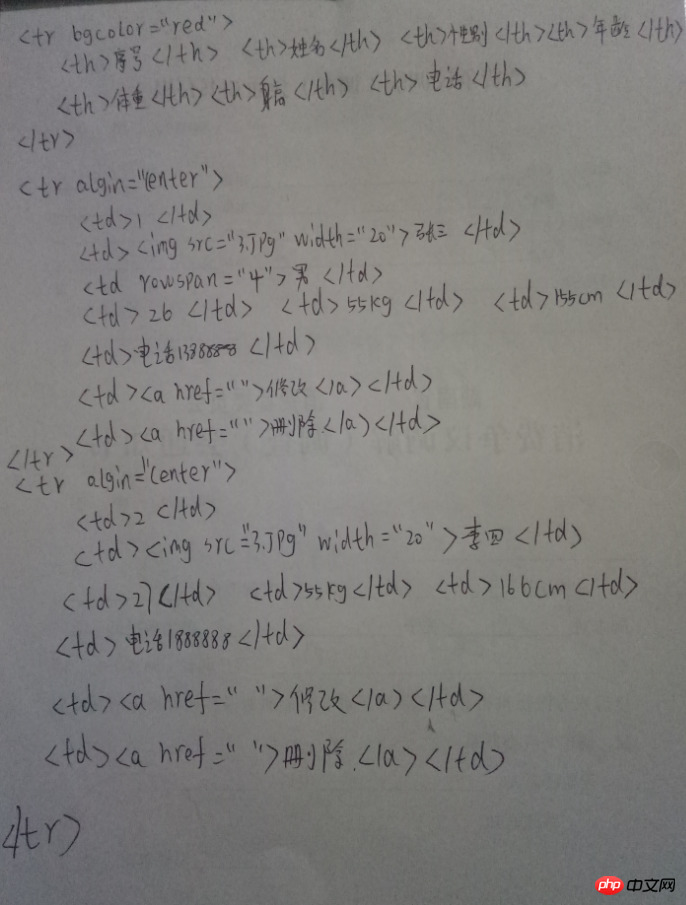 <tr bgcolor="red">
<th>序号</th> <th>姓名</th> <th>性别</th><th>年龄</th>
<th>体重</th><th>身高</th> <th>电话</th>
</tr>
<tr algin="center">
<td>1 </td>
<td><img src="3.JPg" width="20">张三</td>
<td rowspan="4">男</td>
<td>26</td> <td>55kg</td> <td>155cm</td>
<td>电话1388888</td>
<td><a href="">修改</a></td>
<td><a href="">删除</a></td>
</tr>
<tr algin="center">
<td>2 </td>
<td><img src="3.JPg" width="20">李四</td>
<td>27</td> <td>55kg</td> <td>166cm</td>
<td>电话1888888</td>
<td><a href=" ">修改</a></td>
<td><a href=" ">删除</a></td>
</tr>
php 中文网